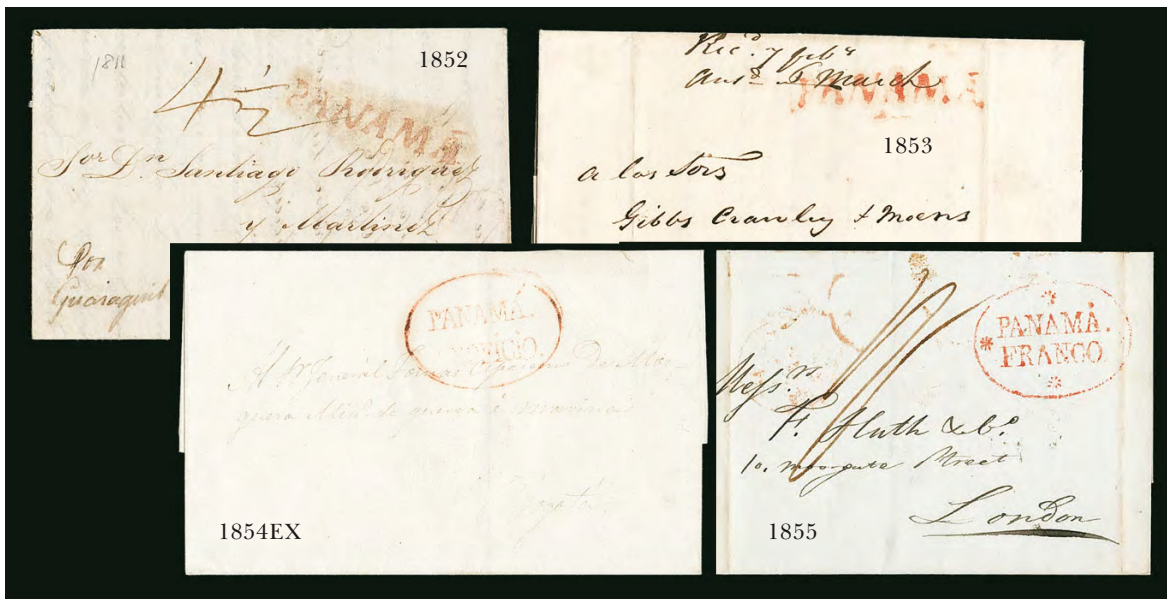 1811
1852
4½
PANAMÁ
Sor Dn. Santiago Rodriguez
y Martinez
Por
Guaiaquil
Recd. 7 febr
Ansd. 5 March
PANAMÁ
1853
a los Sors
Gibbs Crawley & Moens
PANAMÁ.
OFICIO.
Al Sr General Tomas
de guerra
1854EX
PANAMÁ.
FRANCO
Messrs.
F. Huth & Co.
10. moorgate Street
London
1855